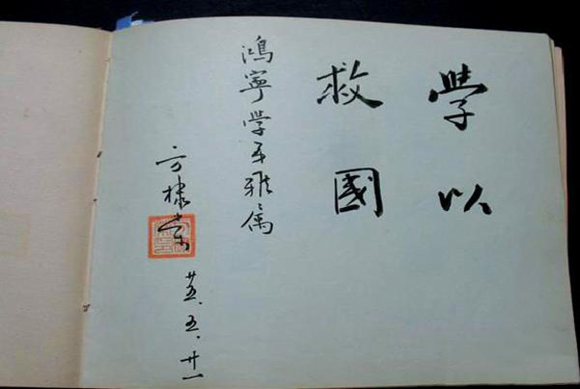 學以
救國
鴻寧學弟雅屬
方棣棠
廿五.五.廿一